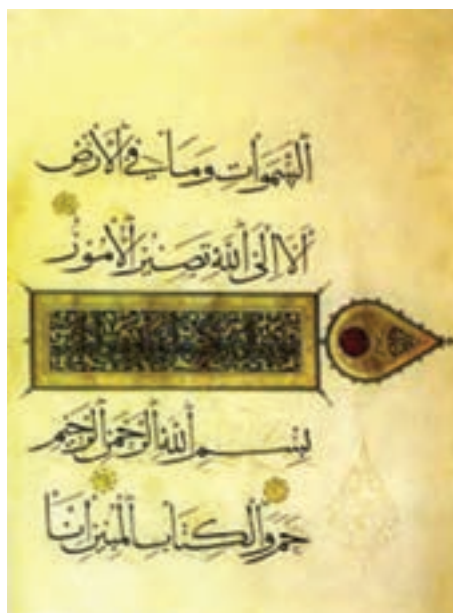 ٱلسَّمَوَاتِ وَمَا فِي ٱلْأَرْضِ
أَلَا إِلَى ٱللَّهِ تَصِيرُ ٱلْأُمُورُ
بِسْمِ ٱللَّهِ ٱلرَّحْمَٰنِ ٱلرَّحِيمِ
حم وَٱلْكِتَابِ ٱلْمُبِينِ إِنَّا